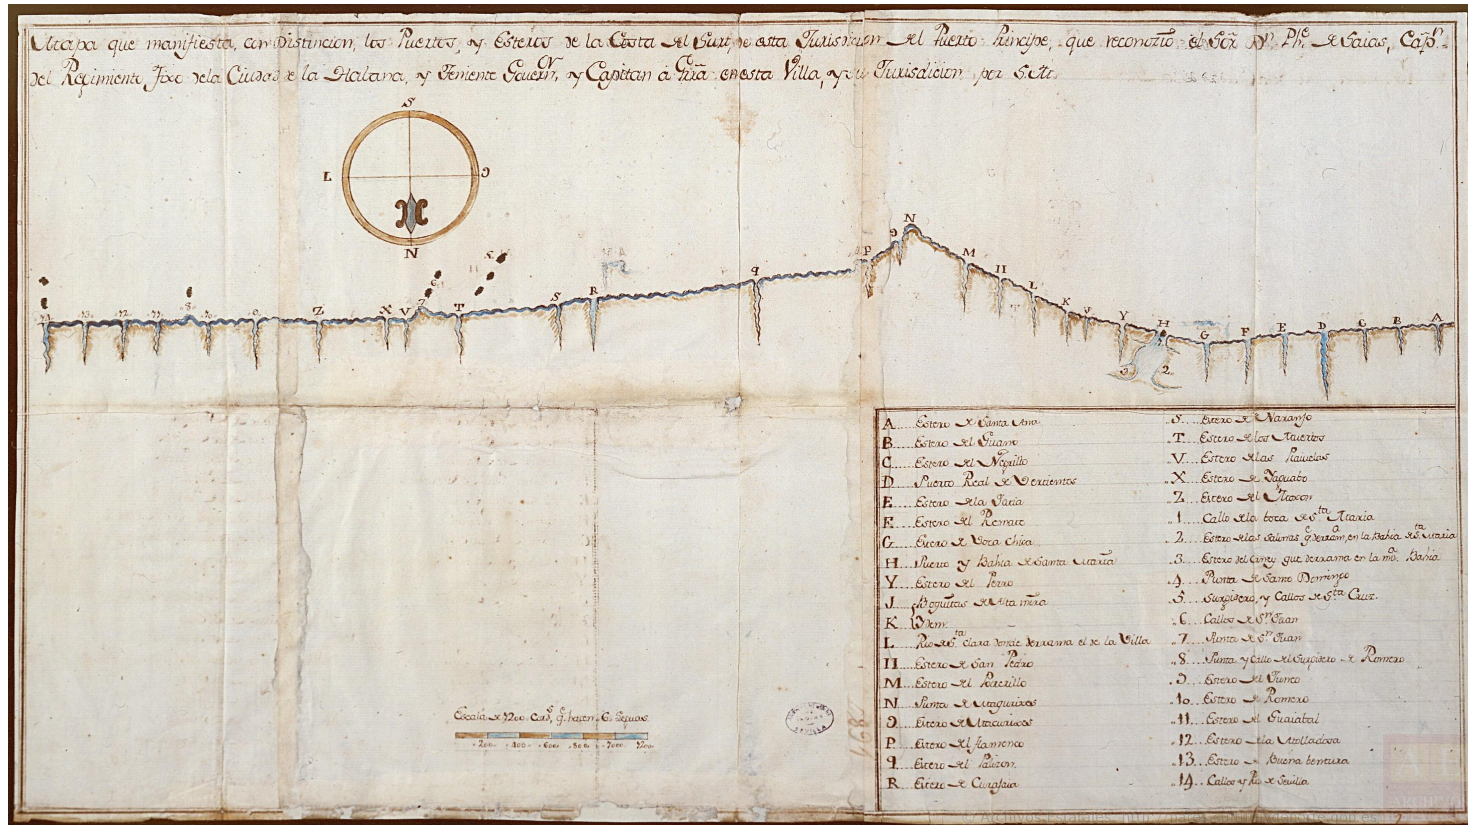 Mapa que manifiesta, con Distincion, los Puertos, y Esteros de la Costa del Sur, de esta Jurisdicion del Puerto Principe, que reconozio el Sor. Dn. Phe. de Saias, Capn.
del Regimiento fixo de la Ciudad de la Habana, y Teniente Governr. y Capitan á Grâ. en esta Villa, y su Jurisdicion por S. M.
S
L
N
N
P
M
H
q
L
R
S
K
J
T
X
V
Z
Y
H
G
F
E
D
C
B
A
2
Escala de 1200. Cords. q. hacen 6 Leguas.
200. 400. 600. 800. 1000. 1200.
A Estero de Santa Ana
B Estero del Guano
C Estero del Negrillo
D Puerto Real de Vertientes
E Estero de la Jaria
F Estero del Remate
G Estero de Boca Chica
H Puerto y Bahia de Santa Maria
Y Estero del Perro
J Boquitas de Alta mira
K Idem
L Rio de Sta. Clara donde derrama el de la Villa
H Estero de San Pedro
M Estero del Porcrillo
N Punta de Macurixes
O Estero de Macurixes
P Estero del flamenco
q Estero del
R Estero de Curajaia
S Estero de Naranjo
T Estero de los Muertos
V Estero de las
X Estero de Yaguabo
Z Estero del Moxon
1 Callo de la boca de Sta. Maria
2 Estero de las Salinas q. derraman en la Bahia de Sta. Maria
3 Estero del Ciney que derrama en la mâ. Bahia
4 Punta de Santo Domingo
5 Surgidero, y Callos de Sta. Cruz.
6 Callos de Sn. Juan
7 Punta de Sn. Juan
8 Punta y Callo del Surgidero de Romero
9 Estero del Junco
10 Estero de Romero
11 Estero del Guaiabal
12 Estero de la Atolladosa
13 Estero de Buena bentura
14 Callos y Rio de Sevilla